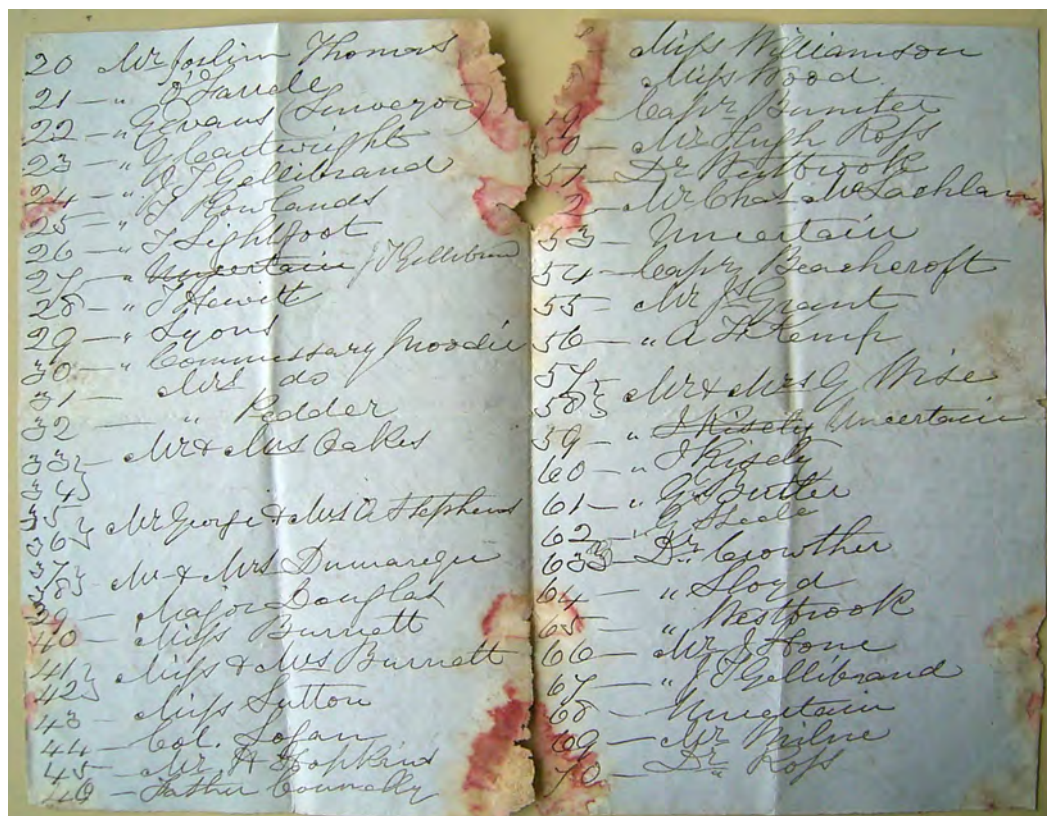 20 Mr Joslin Thomas
21 — " O'Farrell
22 — " G Evans (Surveyor)
23 — " G Cartwright
24 — " J T Gellibrand
25 — " T Rowlands
26 — " T Lightfoot
27 — " Uncertain J T Gellibrand
28 — " T Hewitt
29 — " Lyons
30 — " Commissary Moodie
31 — Mrs do
32 — " Pedder
33} — Mr & Mrs Oakes
34}
35} Mr George & Mrs A Stephens
36}
37} Mr & Mrs Dumaresq
38}
39 — Major Douglas
40 — Miss Burnett
41} Miss & Mrs Burnett
42}
43 — Miss Sutton
44 — Col. Logan
45 — Mr H Hopkins
46 — Father Connolly
Miss Williamson
Miss Wood
9 — Captn Bunster
50 — Mr Hugh Ross
51 — Dr Westbrook
2 — Mr Chas McLachlan
53 — Uncertain
54 — Captn Beachcroft
55 — Mr Js Grant
56 — " A F Kemp
57} Mr & Mrs G Wise
58}
59 — " J Risely Uncertain
60 — " J Risely
61 — " G Butler
62 — " G Steele
63 — Dr Crowther
64 — " Lloyd
65 — " Westbrook
66 — Mr J Hone
67 — " J T Gellibrand
68 — Uncertain
69 — Mr Milne
70 — Dr Ross